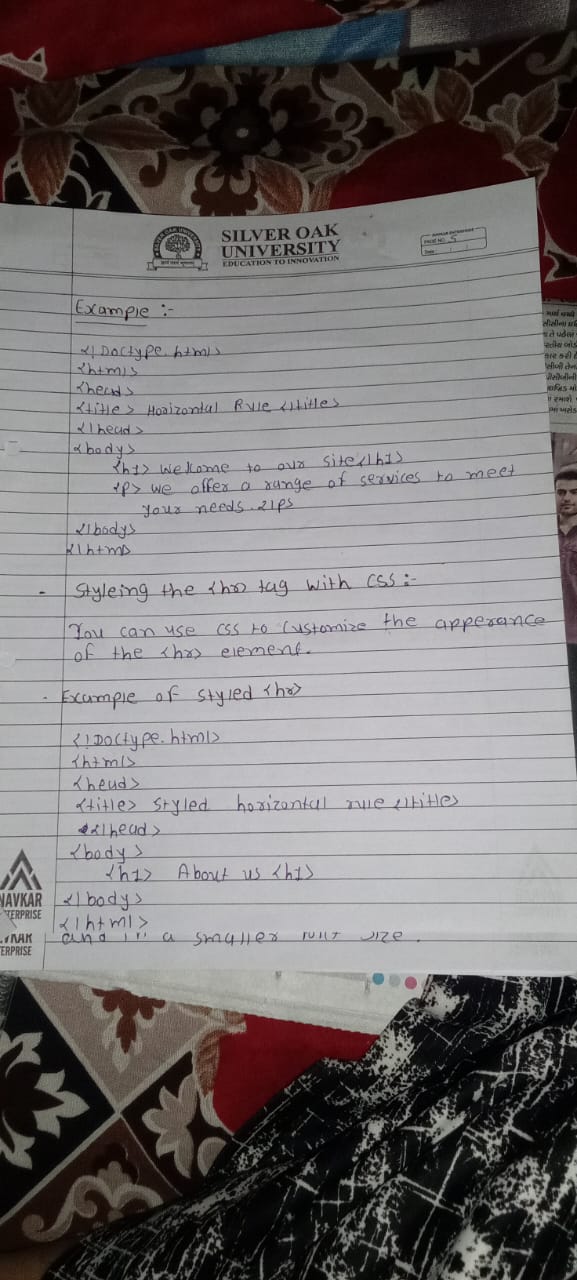 SILVER OAK
UNIVERSITY
EDUCATION TO INNOVATION
SILVER OAK UNIVERSITY
PAGE NO. 5
Date
Example :-
<!Doctype.html>
<html>
<head>
<title> Horizontal Rule </title>
</head>
<body>
<h1> Welcome to our site </h1>
<p> We offer a range of services to meet
your needs. </p>
</body>
</html>
- Styleing the <hr> tag with CSS :-
You can use CSS to Customize the apperance
of the <hr> element.
- Example of styled <hr>
<!Doctype.html>
<html>
<head>
<title> Styled horizontal rule </title>
</head>
<body>
<h1> About us <h1>
</body>
</html>
NAVKAR
ENTERPRISE
and a smaller size.
ERPRISE